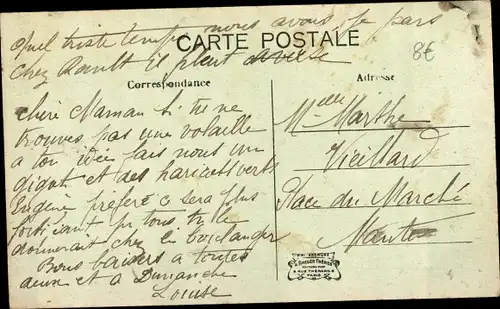 Quel triste temps nous avons je pars
chez Rault il pleut
CARTE POSTALE
8€
Correspondance
Adresse
chère Maman si tu ne
trouves pas une volaille
a ton idée fais nous un
gigot et des haricots verts
Eugène préfère ce sera plus
pr tous, tu le
donnerait chez le boulanger
Bons baisers a toutes
deux et a Dimanche
Louise
Melle Marthe
Vieillard
Place du Marché
Mantes
PARIS